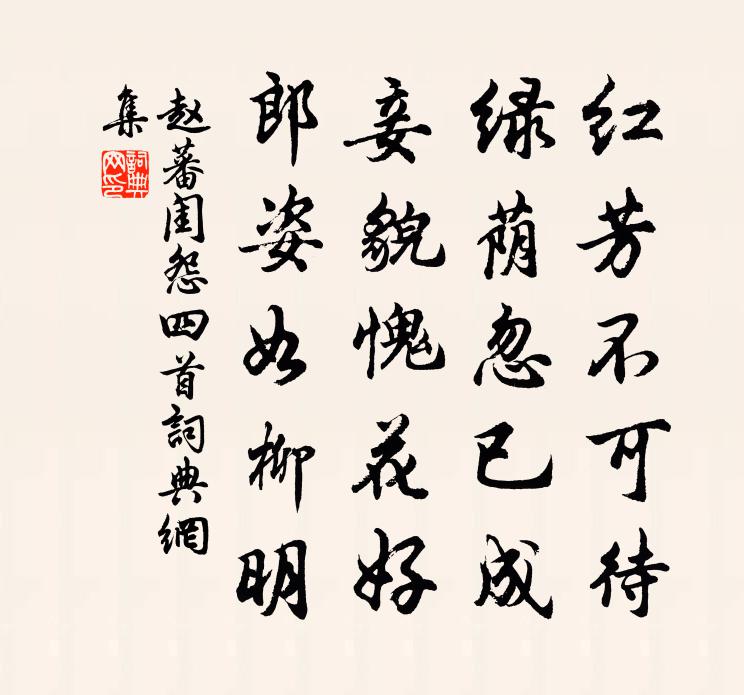 红芳不可待
绿荫忽已成
妾貌愧花好
郎姿如柳明
赵蕃闺怨四首詞典網
集
詞典
网印